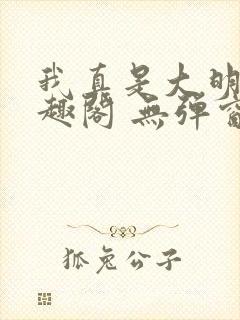 我真是大明
趣阁 無彈窗
狐兔公子